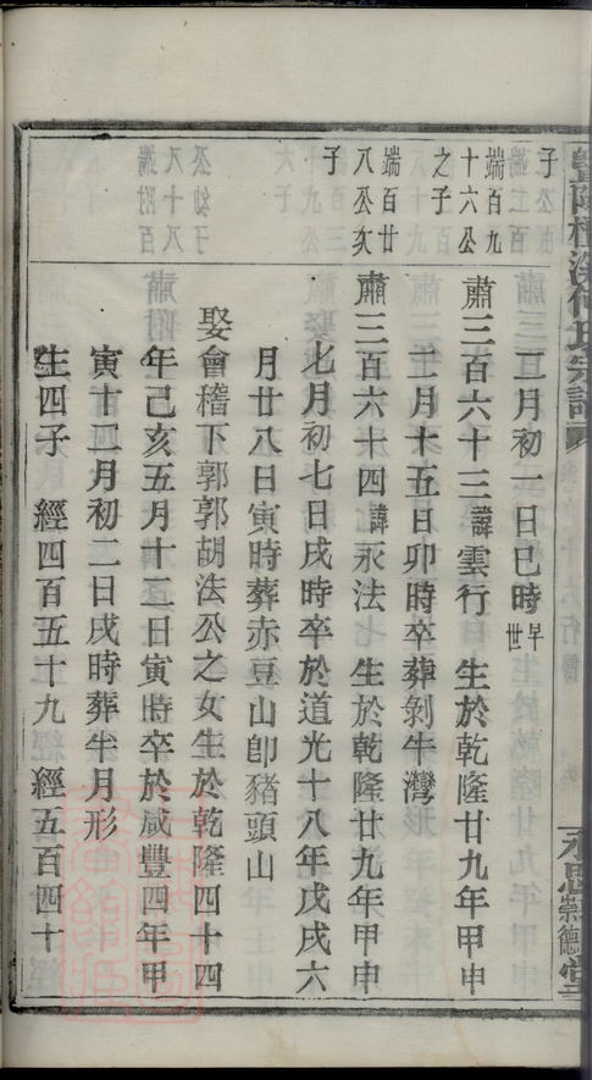 二月初一日巳時早世
子
肅三百六十三諱雲行　生於乾隆廿九年甲申
二月十五日卯時卒葬剝牛灣
端百九
十六公
之子
肅三百六十四諱永法　生於乾隆廿九年甲申
七月初七日戌時卒於道光十八年戊戌六
月廿八日寅時葬赤豆山卽豬頭山
娶會稽下郭郭胡法公之女生於乾隆四十四
年己亥五月十二日寅時卒於咸豐四年甲
寅十二月初二日戌時葬半月形
生四子　經四百五十九　經五百四十
端百廿
八公次
子
氏宗譜
永思崇德堂